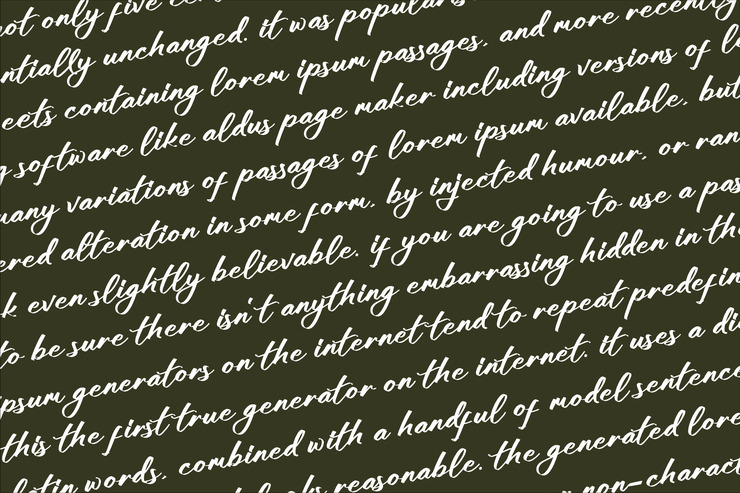 not only five
ntially unchanged. it was popularis
eets containing lorem ipsum passages, and more recently
g software like aldus page maker including versions of lo
many variations of passages of lorem ipsum available, but
ered alteration in some form, by injected humour, or ran
k even slightly believable. if you are going to use a pas
to be sure there isn't anything embarrassing hidden in th
ipsum generators on the internet tend to repeat predefin
this the first true generator on the internet. it uses a di
latin words, combined with a handful of model sentence
looks reasonable. the generated lore
non-charact